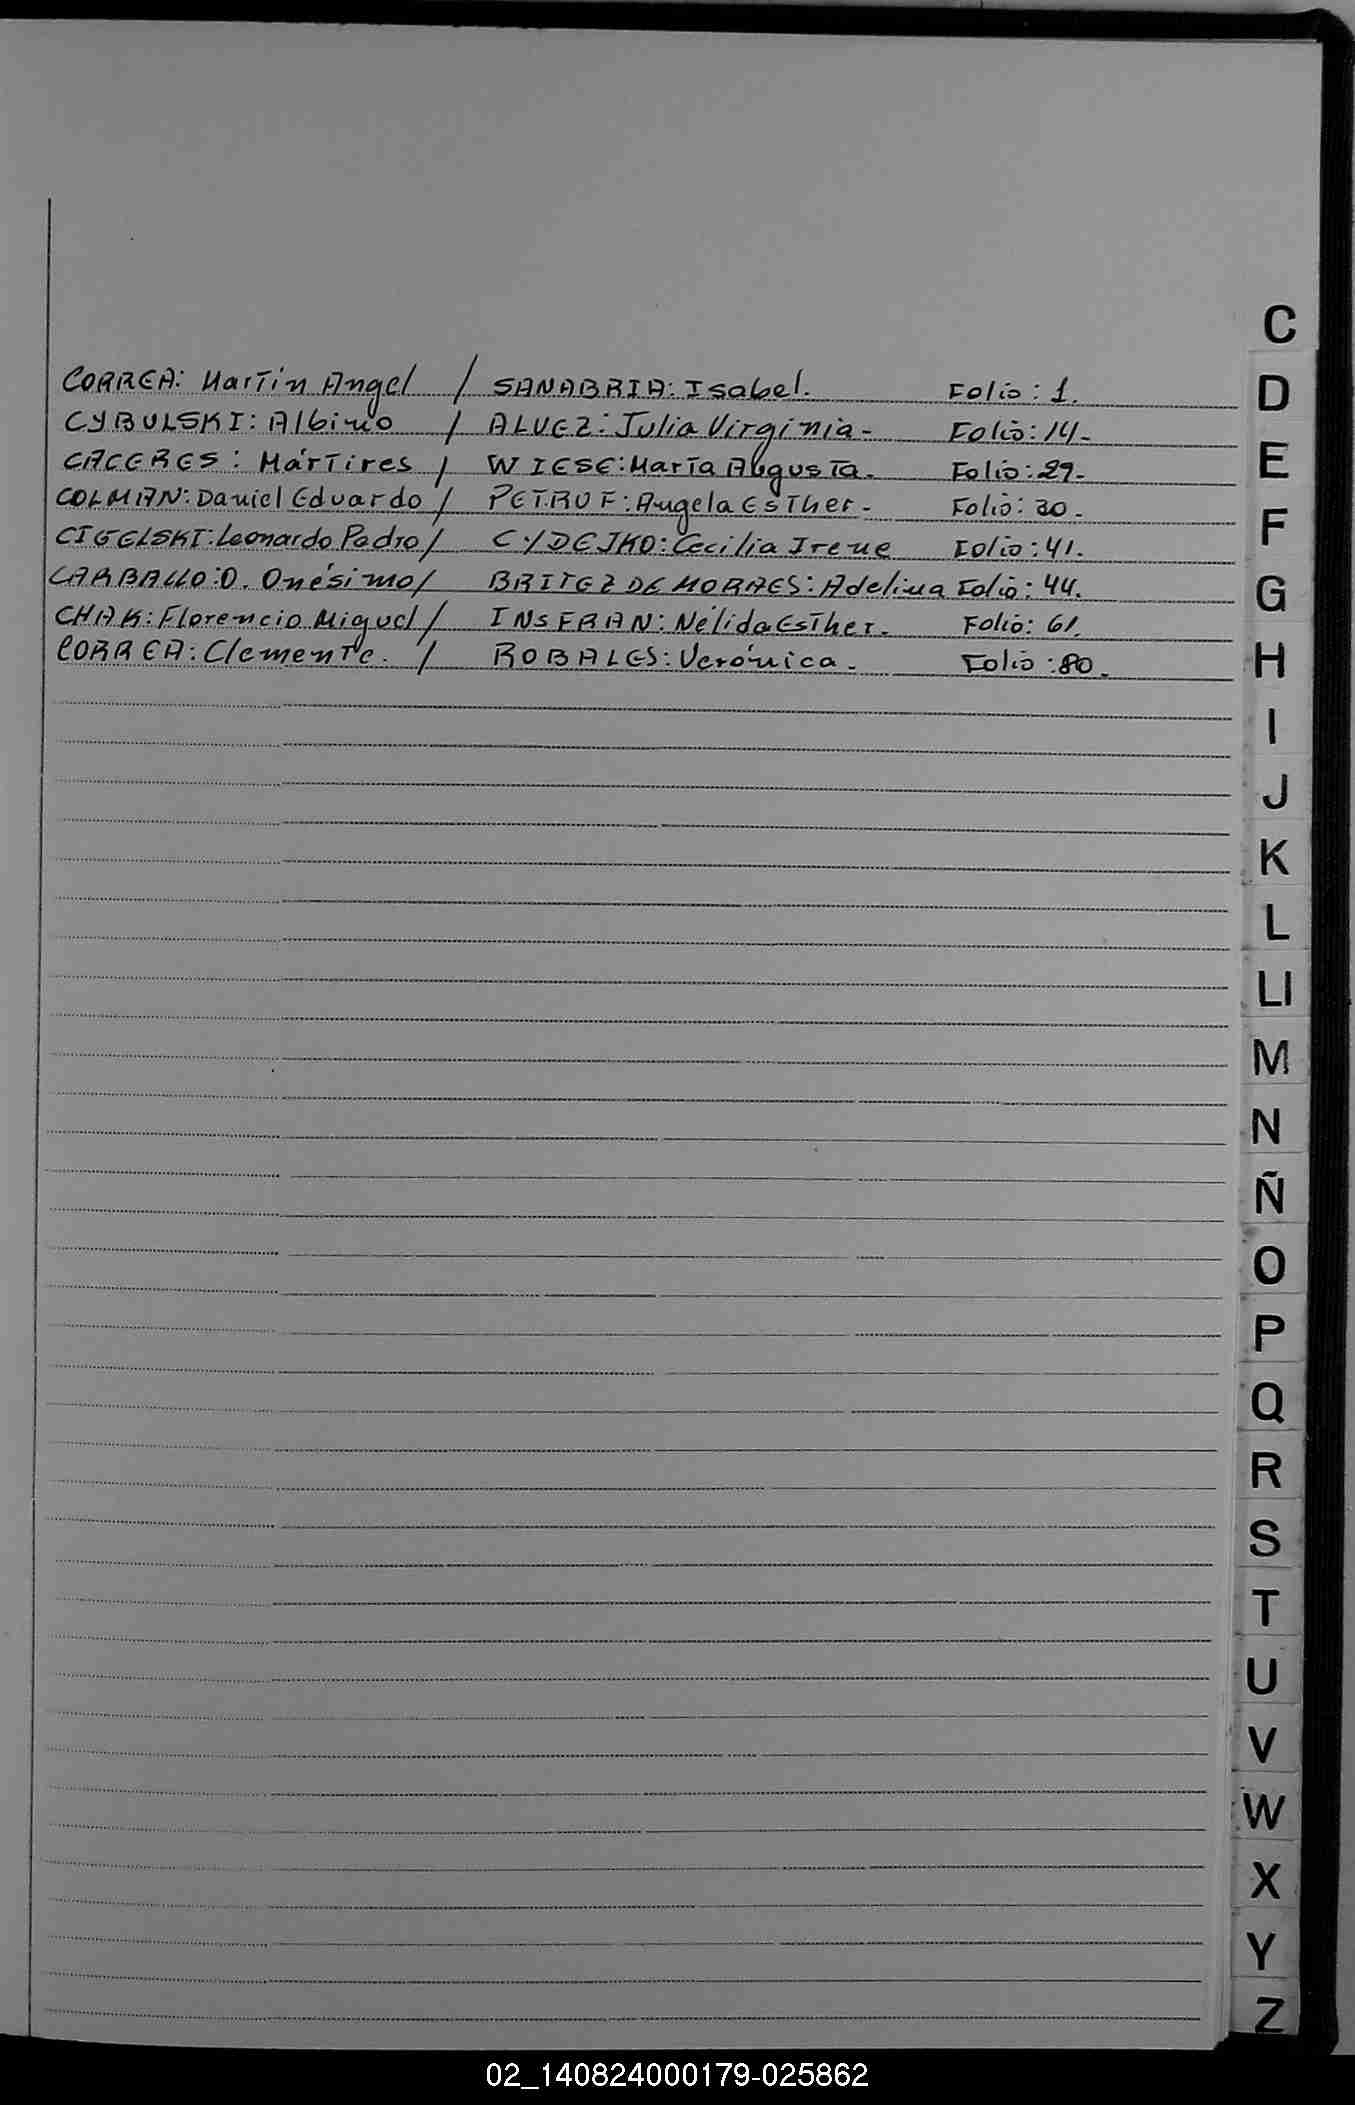 C
CORREA: Martín Angel / SANABRIA: Isabel. Folio: 1.
CYBULSKI: Albino / ALVEZ: Julia Virginia- Folio: 14-
CACERES: Mártires / WIESE: María Augusta. Folio: 29-
COLMAN: Daniel Eduardo / PETRUF: Angela Esther- Folio: 30-
CIGELSKI: Leonardo Pedro / CYDEJKO: Cecilia Irene Folio: 41.
CARBALLO: O. Onésimo / BRITEZ DE MORAES: Adelina Folio: 44.
CHAK: Florencio Miguel / INSFRAN: Nélida Esther- Folio: 61.
CORREA: Clemente. / ROBALES: Verónica- Folio: 80-
D
E
F
G
H
I
J
K
L
Ll
M
N
Ñ
O
P
Q
R
S
T
U
V
W
X
Y
Z
02_140824000179-025862